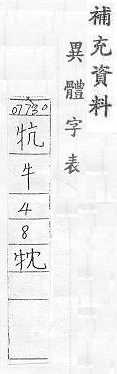 補充資料
異體字表
07730
牨
牛
4
8
牠